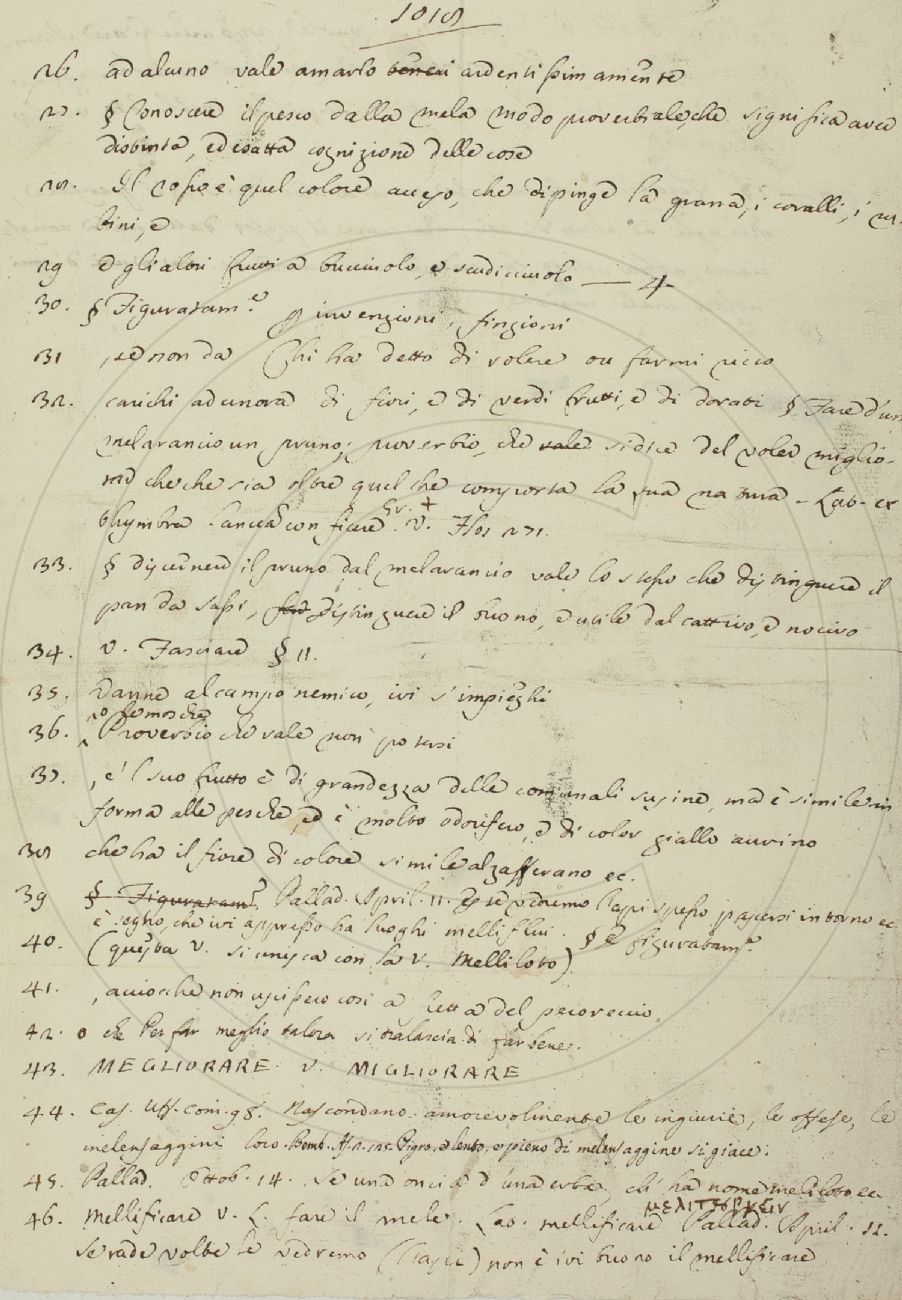 1018
26. ad alcuno vale amarlo ardentissimamente
27. § Conoscere il pesco dalla mela modo proverbiale, che significa aver
distinta, ed esatta cognizione delle cose
28. Il rosso è quel colore acceso, che dipinge la grana, i coralli, i ru-
bini, e
29 e gli altri frutti a bucciuolo, e scudicciuolo — 4
30. § Figuratam.e invenzioni, finzioni
31 , se non da Chi ha detto di volere farmi ricco
32. carichi ad un'ora di fiori, e di verdi frutti, e di dorati § Fare d'un
melarancio un pruno; proverbio, che vale si dice del voler miglio-
rare che che sia oltre quel che comporta la sua natura - Lab. ec
thymbra . lancea con fiore Gr. + v. Flos 271.
33. § discernere il pruno dal melarancio vale lo stesso che distinguere il
pan da sassi, distinguere il buono, e utile dal cattivo, e nocivo
34. v. Fasciare § 11.
35. Danne al campo nemico, ivi s'impieghi
36. Proverbio che vale non potersi
37. , e 'l suo frutto è di grandezza delle comunali susine, ma è simile in
forma alle pesche, ed è molto odorifero, e di color giallo aurino
38 che ha il fiore di colore simile al zafferano ec.
39 § Figuratam.e Pallad. April. 11. E se vedremo l'api spesso pascersi intorno ec.
è segno, che ivi appresso ha luoghi melliflui. § e figuratam.e
40. (questa v. si unisca con la v. Melliloto)
41. , acciocchè non uscissero così a fretta del pecoreccio.
42. o che Per far meglio talora si tralascia di far bene.
43. MEGLIORARE v. MIGLIORARE
44. Cas. Uff. com. 98. Nascondano amorevolmente le ingiurie, le offese, le
melensaggini loro. Bemb. As. 2. 105. Pigro, e lento, e pieno di melensaggine si giace.
45. Pallad. Ottob. 14. Se una oncia d'una erba, ch' ha nome meliloto ec
46. Mellificare v. L. fare il mele. Lat. mellificare μελιτουργεῖν Pallad. April. 12.
Se rade volte le vedremo (l'api) non è ivi buono il mellificare